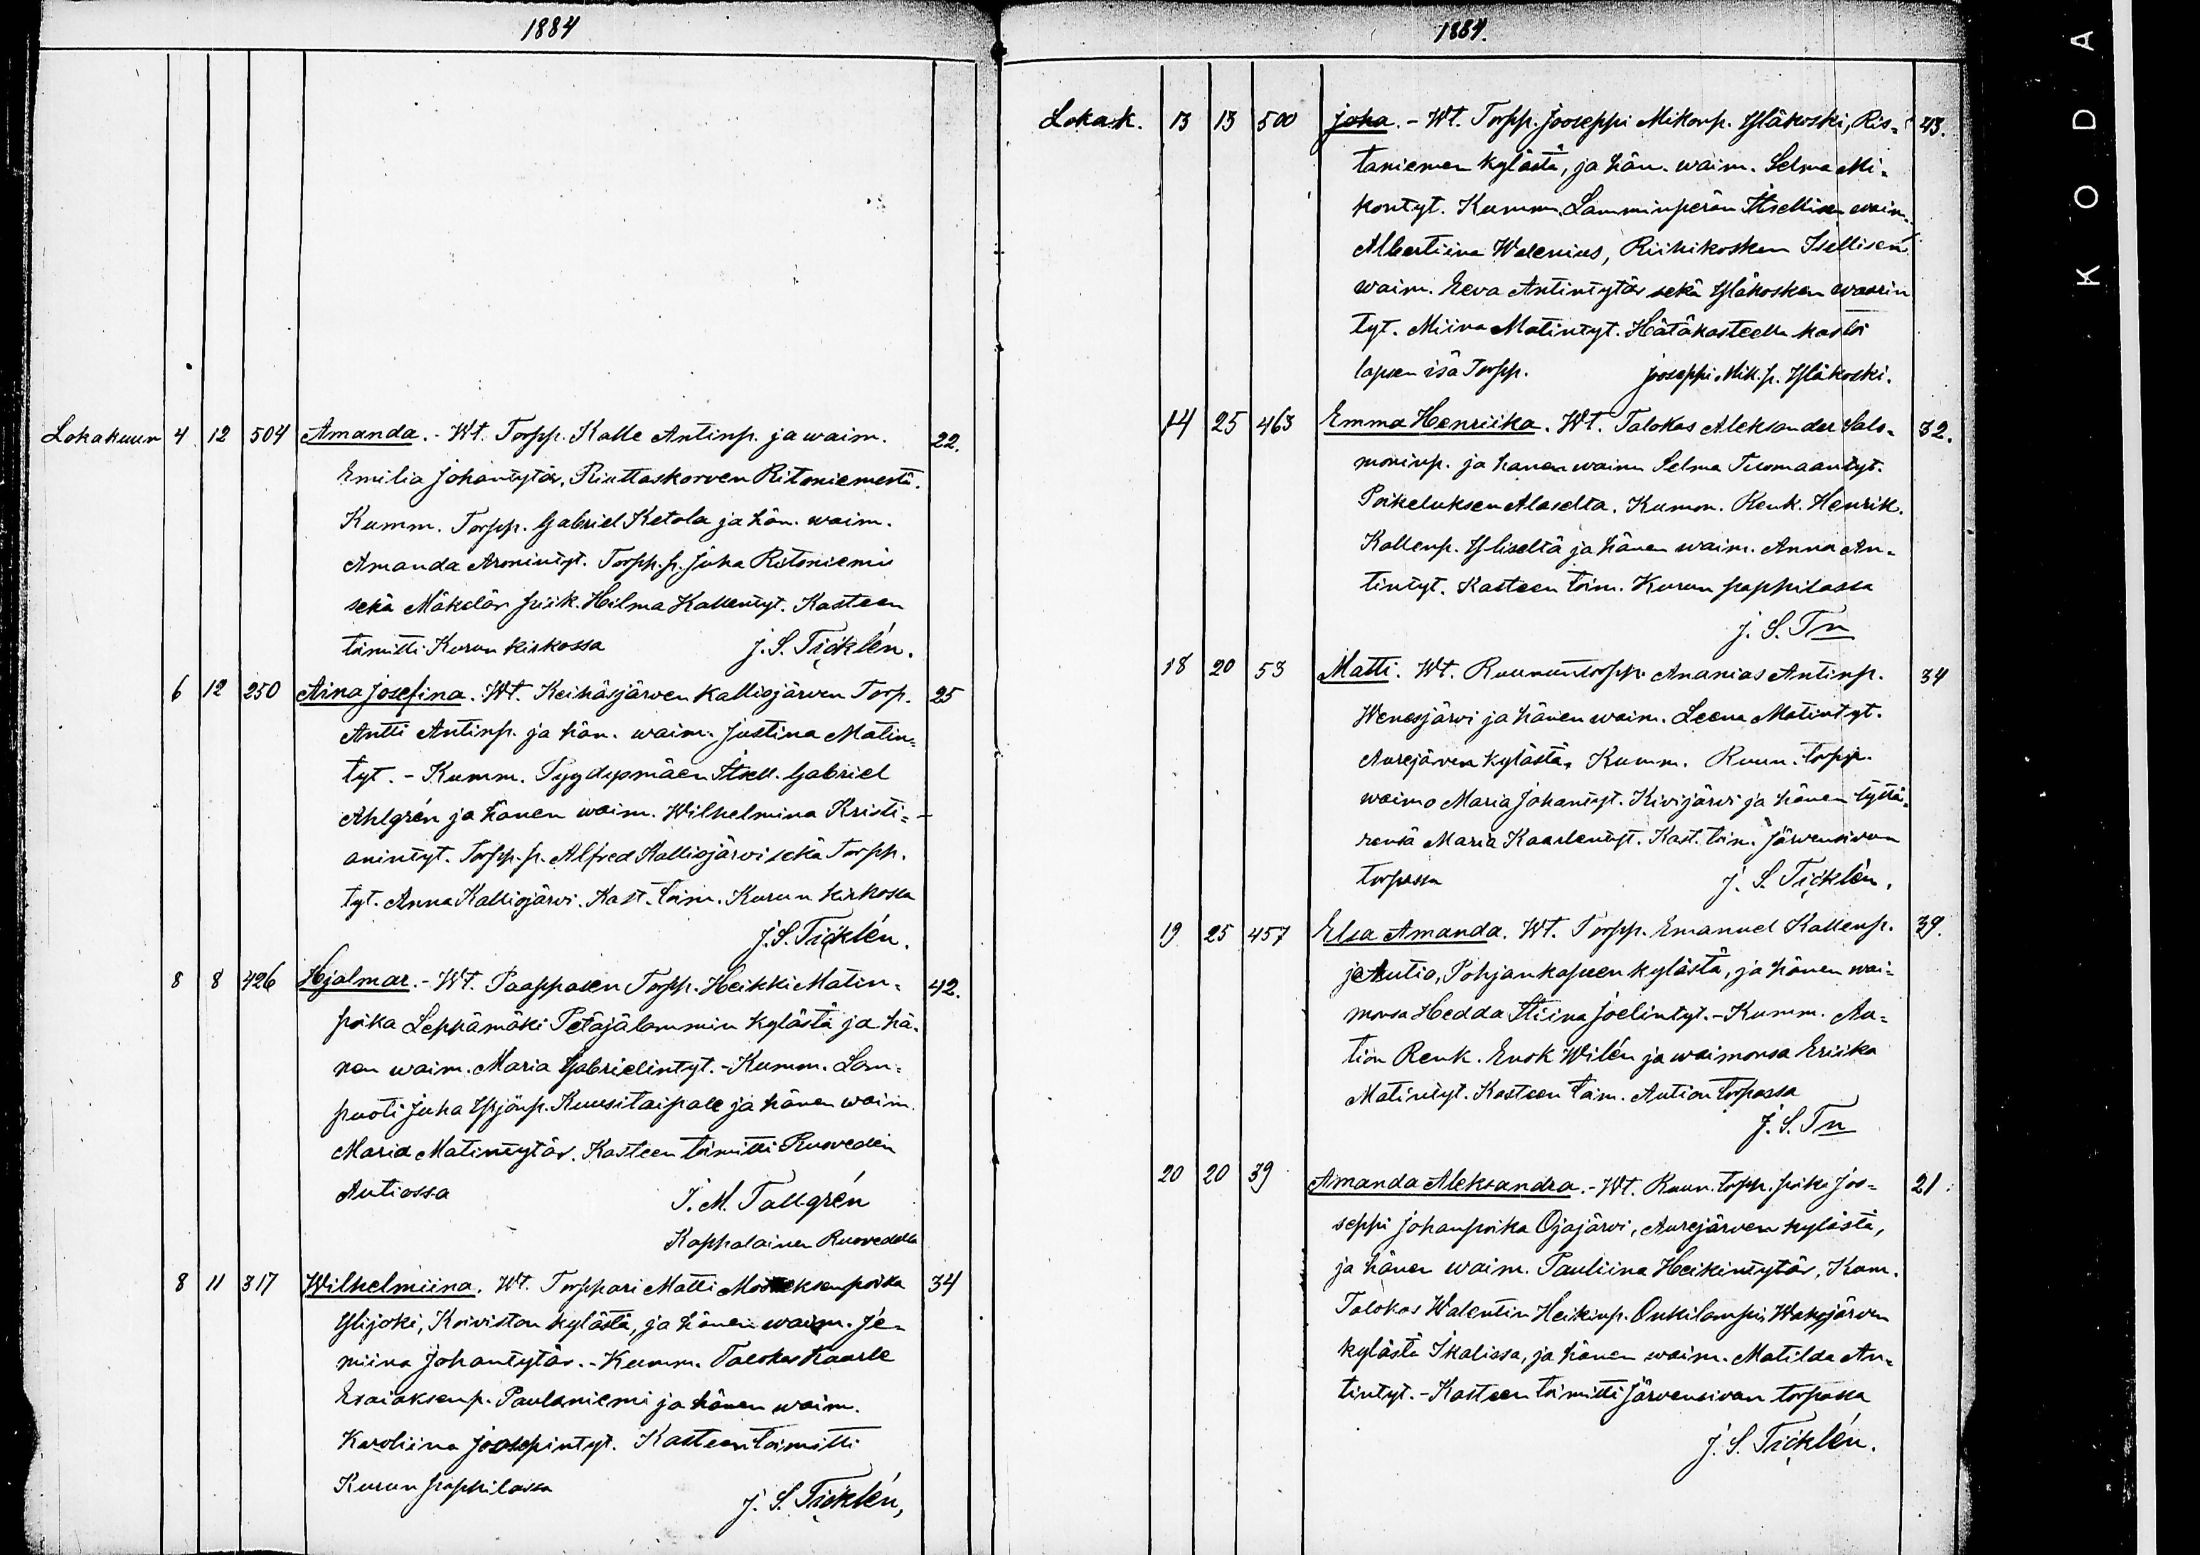 1884
Lokakuun 4 12 504 Amanda. - Wt. Torpp. Kalle Antinp. ja waim. 22.
Emilia Johantytär, Riuttaskorven Ritoniemestä.
Kumm. Torpp. Gabriel Ketola ja hän. waim.
Amanda Aronintyt. Torpp. p. Juha Ritoniemi
sekä Mäkelän piik. Hilma Kallentyt. Kasteen
toimitti Kurun kirkossa J. S. Ticklén.
6 12 250 Aina Josefina. Wt. Keihäsjärven Kalliojärven Torp. 25
Antti Antinp. ja hän. waim. Justina Matin-
tyt. - Kumm. Itsell. Gabriel
Ahlgrén ja hänen waim. Wilhelmina Kristi-
anintyt. Torpp. p. Alfred Kalliojärvi sekä Torpp.
tyt. Anna Kalliojärvi. Kast. toim. Kurun kirkossa
J. S. Ticklén.
8 8 426 Hjalmar. - Wt. Paappasen Torpp. Heikki Matin- 42.
poika Leppämäki Petäjälammin kylästä ja hä-
nen waim. Maria Gabrielintyt. - Kumm. Lam-
puoti Juha Yrjönp. Kuusitaipale ja hänen waim.
Maria Matintytär. Kasteen toimitti Ruoveden
Autiossa J. M. Tallgrén
Kappalainen Ruovedellä
8 11 317 Wilhelmiina. Wt. Torppari Matti poika 34
Ylijoki, Koiviston kylästä, ja hänen waim. Je-
miina Johantytär. - Kumm. Talokas Kaarle
Esaiaksenp. Paulaniemi ja hänen waim.
Karoliina Joosepintyt. Kasteen toimitti
Kurun pappilassa J. S. Ticklén,
1884.
Lokak. 13 13 500 Joha. - Wt. Torpp. Jooseppi Mikonp. Yläkoski, Ris- 43.
taniemen kylästä, ja hän. waim. Selma Mi-
kontyt. Kumm. Lamminperän Itsellisen waim.
Albertiina Walenius, Riihikosken Isellisen
waim. Eeva Antintytär sekä Yläkosken waarin
tyt. Miina Matintyt. Hätäkasteella kastoi
lapsen isä Torpp. Jooseppi Mik. p. Yläkoski.
14 25 463 Emma Henriika. Wt. Talokas Aleksander Salo- 32.
moninp. ja hanen waim Selma Tuomaantyt.
Poikeluksen Alaselta. Kumm. Renk. Henrik.
Kallenp. Yliseltä ja hänen waim. Anna An-
tintyt. Kasteen toim. Kurun pappilassa
J. S. Tn
18 20 53 Matti. Wt. Ruununtorpp. Ananias Antinp. 34
Wenesjärvi ja hänen waim. Leena Matintyt.
Aurejärven kylästä. Kumm. Ruun. torpp.
waimo Maria Johantyt. Kivijärvi ja hänen tyttä-
rensä Maria Kaarlentyt. Kast. toim. Järvensivun
torpassa J. S. Ticklén.
19 25 457 Elsa Amanda. Wt. Torpp. Emanuel Kallenp. 39.
ja Autio, Pohjankapeen kylästä, ja hänen wai-
monsa Hedda Stiina Joelintyt. - Kumm. Au-
tion Renk. Enok Wilén ja waimonsa Eriika
Matintyt. Kasteen toim. Aution torpassa
J. S. Tn
20 20 39 Amanda Aleksandra. - Wt. Ruun. torpp. poika Joo- 21.
seppi Johanpoika Ojajärvi, Aurejärven kylästä,
ja hänen waim. Pauliina Heikintytär, Kum.
Talokas Walentin Heikinp. Onkilampi, Wahojärven
kylästä Ikalissa, ja hänen waim. Matilda An-
tintyt. - Kasteen toimitti Järvensivun torpassa
J. S. Ticklén.
KODAK